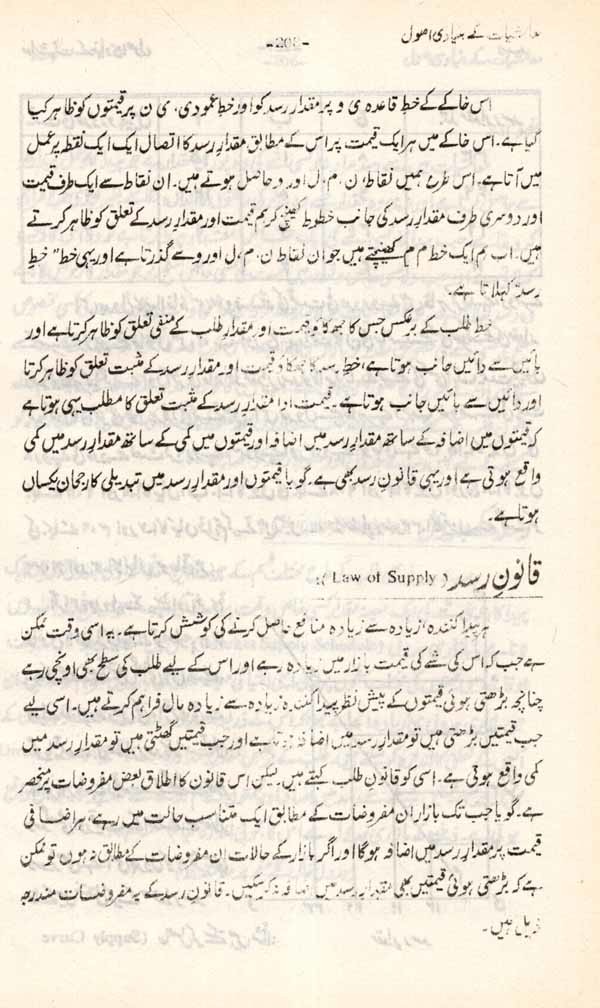 معاشیات کے بنیادی اصول
-208-
اس خاکے کے خطِ قاعدہ ی و پر مقدارِ رسد کو اور خطِ عمودی، ی ن پر قیمتوں کو ظاہر کیا
گیا ہے۔ اس خاکے میں ہر ایک قیمت پر اس کے مطابق مقدارِ رسد کا اتصال ایک ایک نقطہ پر عمل
میں آتا ہے۔ اس طرح ہمیں نقاط، ن، م، ل اور د حاصل ہوتے ہیں۔ ان نقاط سے ایک طرف قیمت
اور دوسری طرف مقدارِ رسد کی جانب خطوط کھینچ کر ہم قیمت اور مقدارِ رسد کے تعلق کو ظاہر کرتے
ہیں۔ اب ہم ایک خط م م کھینچتے ہیں جو ان نقاط ن، م، ل اور و سے گذرتا ہے اور یہی خط "خطِ
رسد" کہلاتا ہے۔
خطِ طلب کے برعکس جس کا جھکاؤ قیمت اور مقدارِ طلب کے منفی تعلق کو ظاہر کرتا ہے اور
بائیں سے دائیں جانب ہوتا ہے، خطِ رسد کا جھکاؤ قیمت اور مقدارِ رسد کے مثبت تعلق کو ظاہر کرتا
اور دائیں سے بائیں جانب ہوتا ہے۔ قیمت اور مقدارِ رسد کے مثبت تعلق کا مطلب یہی ہوتا ہے
کہ قیمتوں میں اضافہ کے ساتھ مقدارِ رسد میں اضافہ اور قیمتوں میں کمی کے ساتھ مقدارِ رسد میں کمی
واقع ہوتی ہے اور یہی قانونِ رسد بھی ہے۔ گویا قیمتوں اور مقدارِ رسد میں تبدیلی کا رجحان یکساں
ہوتا ہے۔
قانونِ رسد (Law of Supply):
ہر پیدا کنندہ زیادہ سے زیادہ منافع حاصل کرنے کی کوشش کرتا ہے۔ یہ اسی وقت ممکن
ہے جب کہ اس کی شے کی قیمت بازار میں زیادہ رہے اور اس کے لیے طلب کی سطح بھی اونچی رہے
چنانچہ بڑھتی ہوئی قیمتوں کے پیش نظر پیدا کنندہ زیادہ سے زیادہ مال فراہم کرتے ہیں۔ اسی لیے
جب قیمتیں بڑھتی ہیں تو مقدارِ رسد میں اضافہ ہوتا ہے اور جب قیمتیں گھٹتی ہیں تو مقدارِ رسد میں
کمی واقع ہوتی ہے۔ اسی کو قانونِ طلب کہتے ہیں۔ لیکن اس قانون کا اطلاق بعض مفروضات پر منحصر
ہے۔ گویا جب تک بازار ان مفروضات کے مطابق ایک متناسب حالت میں رہے، ہر اضافی
قیمت پر مقدارِ رسد میں اضافہ ہوگا اور اگر بازار کے حالات ان مفروضات کے مطابق نہ ہوں تو ممکن
ہے کہ بڑھتی ہوئی قیمتیں بھی مقدارِ رسد میں اضافہ نہ کر سکیں۔ قانونِ رسد کے یہ مفروضات مندرجہ
ذیل ہیں۔